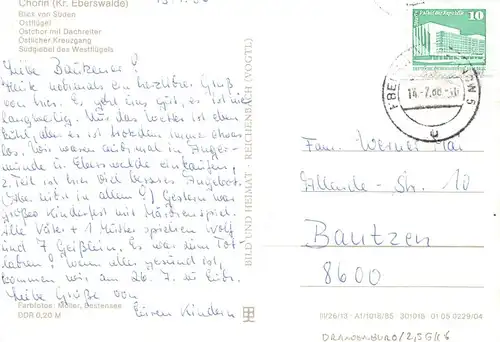 Chorin (Kr. Eberswalde)
Blick von Süden
Ostflügel
Ostchor mit Dachreiter
Östlicher Kreuzgang
Südgiebel des Westflügels
Liebe Bautzener!
nochmals ein herzlicher Gruß
von hier. Es geht uns gut, es ist nie
langweilig. Nur das Wetter ist eben
kühl, aber es ist trotzdem immer etwas
los. Wir waren auch mal in Anger-
münde u. Eberswalde einkaufen,
z. Teil ist hier viel besseres Angebot.
(aber nicht in allem!) Gestern war
großes Kinderfest mit Märchenspiel.
Alle Väter + 1 Mutter spielten Wolf
und 7 Geißlein. Es war zum Tot-
lachen! Wenn alles gesund ist,
kommen wir am 26. 7. zu Euch.
Liebe Grüße von
Euren Kindern
Farbfotos: Müller, Bestensee
DDR 0,20 M
BILD UND HEIMAT · REICHENBACH (VOGTL)
10
DDR
14.-7.88
Fam. Werner
Allende-Str. 10
Bautzen
8600
III/26/13 A1/1018/85 301018 01 05 0229/04